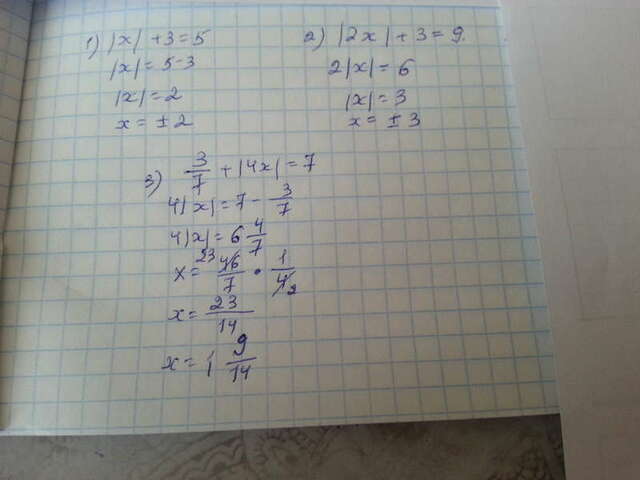 1) |x| + 3 = 5
|x| = 5 - 3
|x| = 2
x = ± 2
2) |2x| + 3 = 9.
2|x| = 6
|x| = 3
x = ± 3
3) 3/7 + |4x| = 7
4|x| = 7 - 3/7
4|x| = 6 4/7
x = 23 46/7 · 1/4 2
x = 23/14
x = 1 9/14